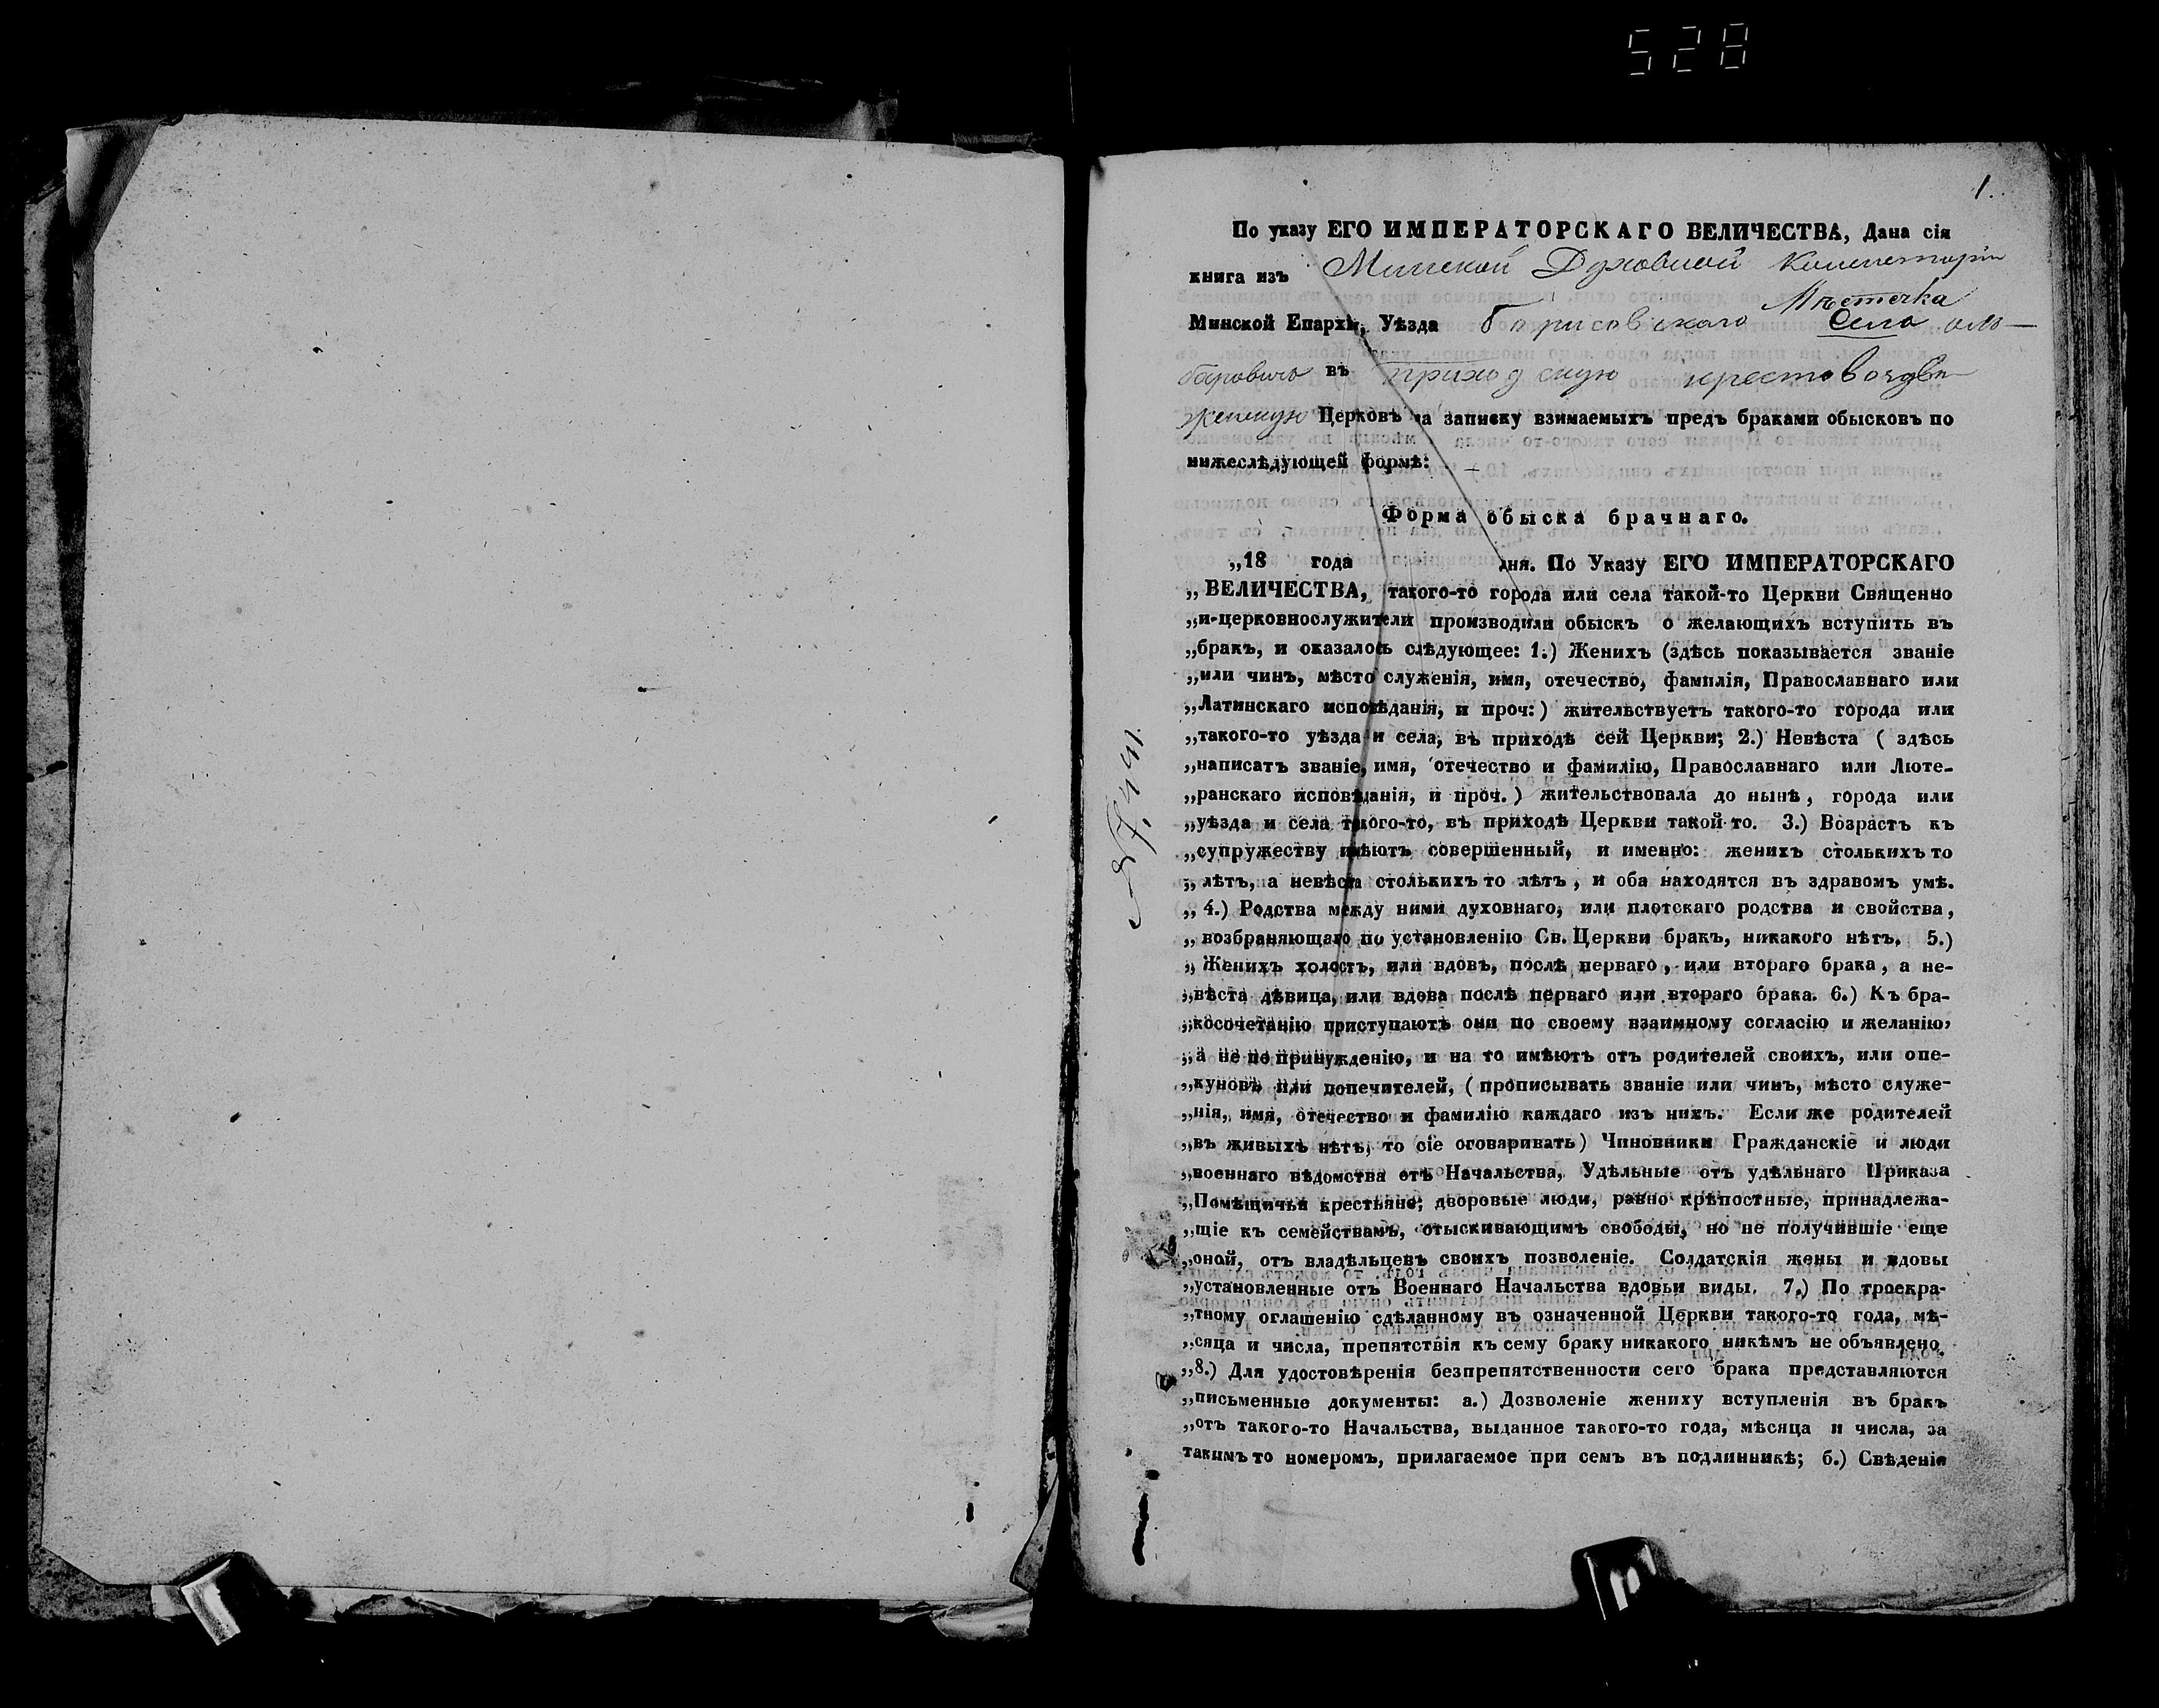 528
1.
По указу ЕГО ИМПЕРАТОРСКАГО ВЕЛИЧЕСТВА, Дана сія
книга изъ Минской Духовной Консисторіи
Мѣстечка
Минской Епархіи, Уѣзда Борисовскаго Села
въ приходскую крестовоздви-
женскую Церковь на записку взимаемыхъ предъ браками обысковъ по
нижеслѣдующей формѣ:
Форма обыска брачнаго.
„18 года дня. По Указу ЕГО ИМПЕРАТОРСКАГО
„ВЕЛИЧЕСТВА, такого-то города или села такой-то Церкви Священно
„и-церковнослужители производили обыскъ о желающихъ вступить въ
„бракъ, и оказалось слѣдующее: 1.) Женихъ (здѣсь показывается званіе
„или чинъ, мѣсто служенія, имя, отечество, фамилія, Православнаго или
„Латинскаго исповѣданія, и проч:) жительствуетъ такого-то города или
„такого-то уѣзда и села, въ приходѣ сей Церкви; 2.) Невѣста ( здѣсь
„написатъ званіе, имя, отечество и фамилію, Православнаго или Люте-
„ранскаго исповѣданія, и проч.) жительствовала до нынѣ, города или
„уѣзда и села такого-то, въ приходѣ Церкви такой-то. 3.) Возрастъ къ
„супружеству имѣютъ совершенный, и именно: женихъ столькихъ то
„лѣтъ, а невѣста столькихъ то лѣтъ, и оба находятся въ здравомъ умѣ.
„4.) Родства между ними духовнаго, или плотскаго родства и свойства,
„возбраняющаго по установленію Св. Церкви бракъ, никакого нѣтъ. 5.)
„Женихъ холостъ, или вдовъ, послѣ перваго, или втораго брака, а не-
„вѣста дѣвица, или вдова послѣ перваго или втораго брака. 6.) Къ бра-
„косочетанію приступаютъ они по своему взаимному согласію и желанію,
„а не по принужденію, и на то имѣютъ отъ родителей своихъ, или опе-
„куновъ или попечителей, (прописывать званіе или чинъ, мѣсто служе-
„нія, имя, отечество и фамилію каждаго изъ нихъ. Если же родителей
„въ живыхъ нѣтъ, то сіе оговаривать) Чиновники Гражданскіе и люди
„военнаго вѣдомства отъ Начальства, Удѣльные отъ удѣльнаго Приказа
„Помѣщичьи крестьяне; дворовые люди, равно крѣпостные, принадлежа-
„щіе къ семействамъ, отыскивающимъ свободы, но не получившіе еще
„оной, отъ владѣльцевъ своихъ позволеніе. Солдатскія жены и вдовы
„установленные отъ Военнаго Начальства вдовьи виды. 7.) По троекра-
„тному оглашенію сдѣланному въ означенной Церкви такого-то года, мѣ-
„сяца и числа, препятствія къ сему браку никакого никѣмъ не объявлено.
„8.) Для удостовѣренія безпрепятственности сего брака представляются
„письменные документы: а.) Дозволеніе жениху вступленія въ бракъ
„отъ такого-то Начальства, выданное такого-то года, мѣсяца и числа, за
такимъ то номеромъ, прилагаемое при семъ въ подлинникѣ; б.) Свѣденіе